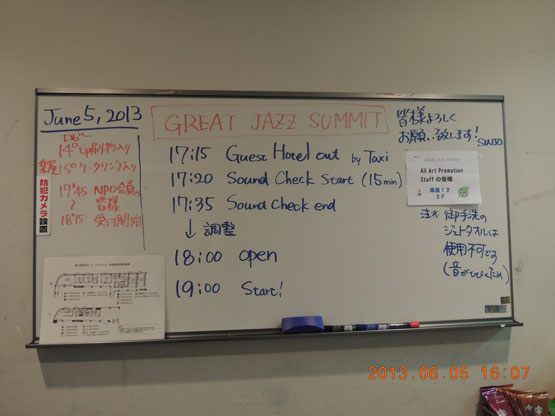 June 5, 2013
GREAT JAZZ SUMMIT
皆様よろしく
お願い致します!
SUNBO
14°
15°ケータリング入り
17°45 NPO会員の
皆様
18°15 受付開始
防犯カメラ設置
17:15 Guest Hotel out by Taxi
17:20 Sound Check Start (15min)
17:35 Sound Check end
↓ 調整
18:00 open
19:00 Start!
GREAT JAZZ SUMMIT
All Art Promotion
Staff の皆様
楽屋12
2F
注※ 御手洗の
ジェットタオルは
使用不可です
(音がひびくため)
2013.06.05 16:07